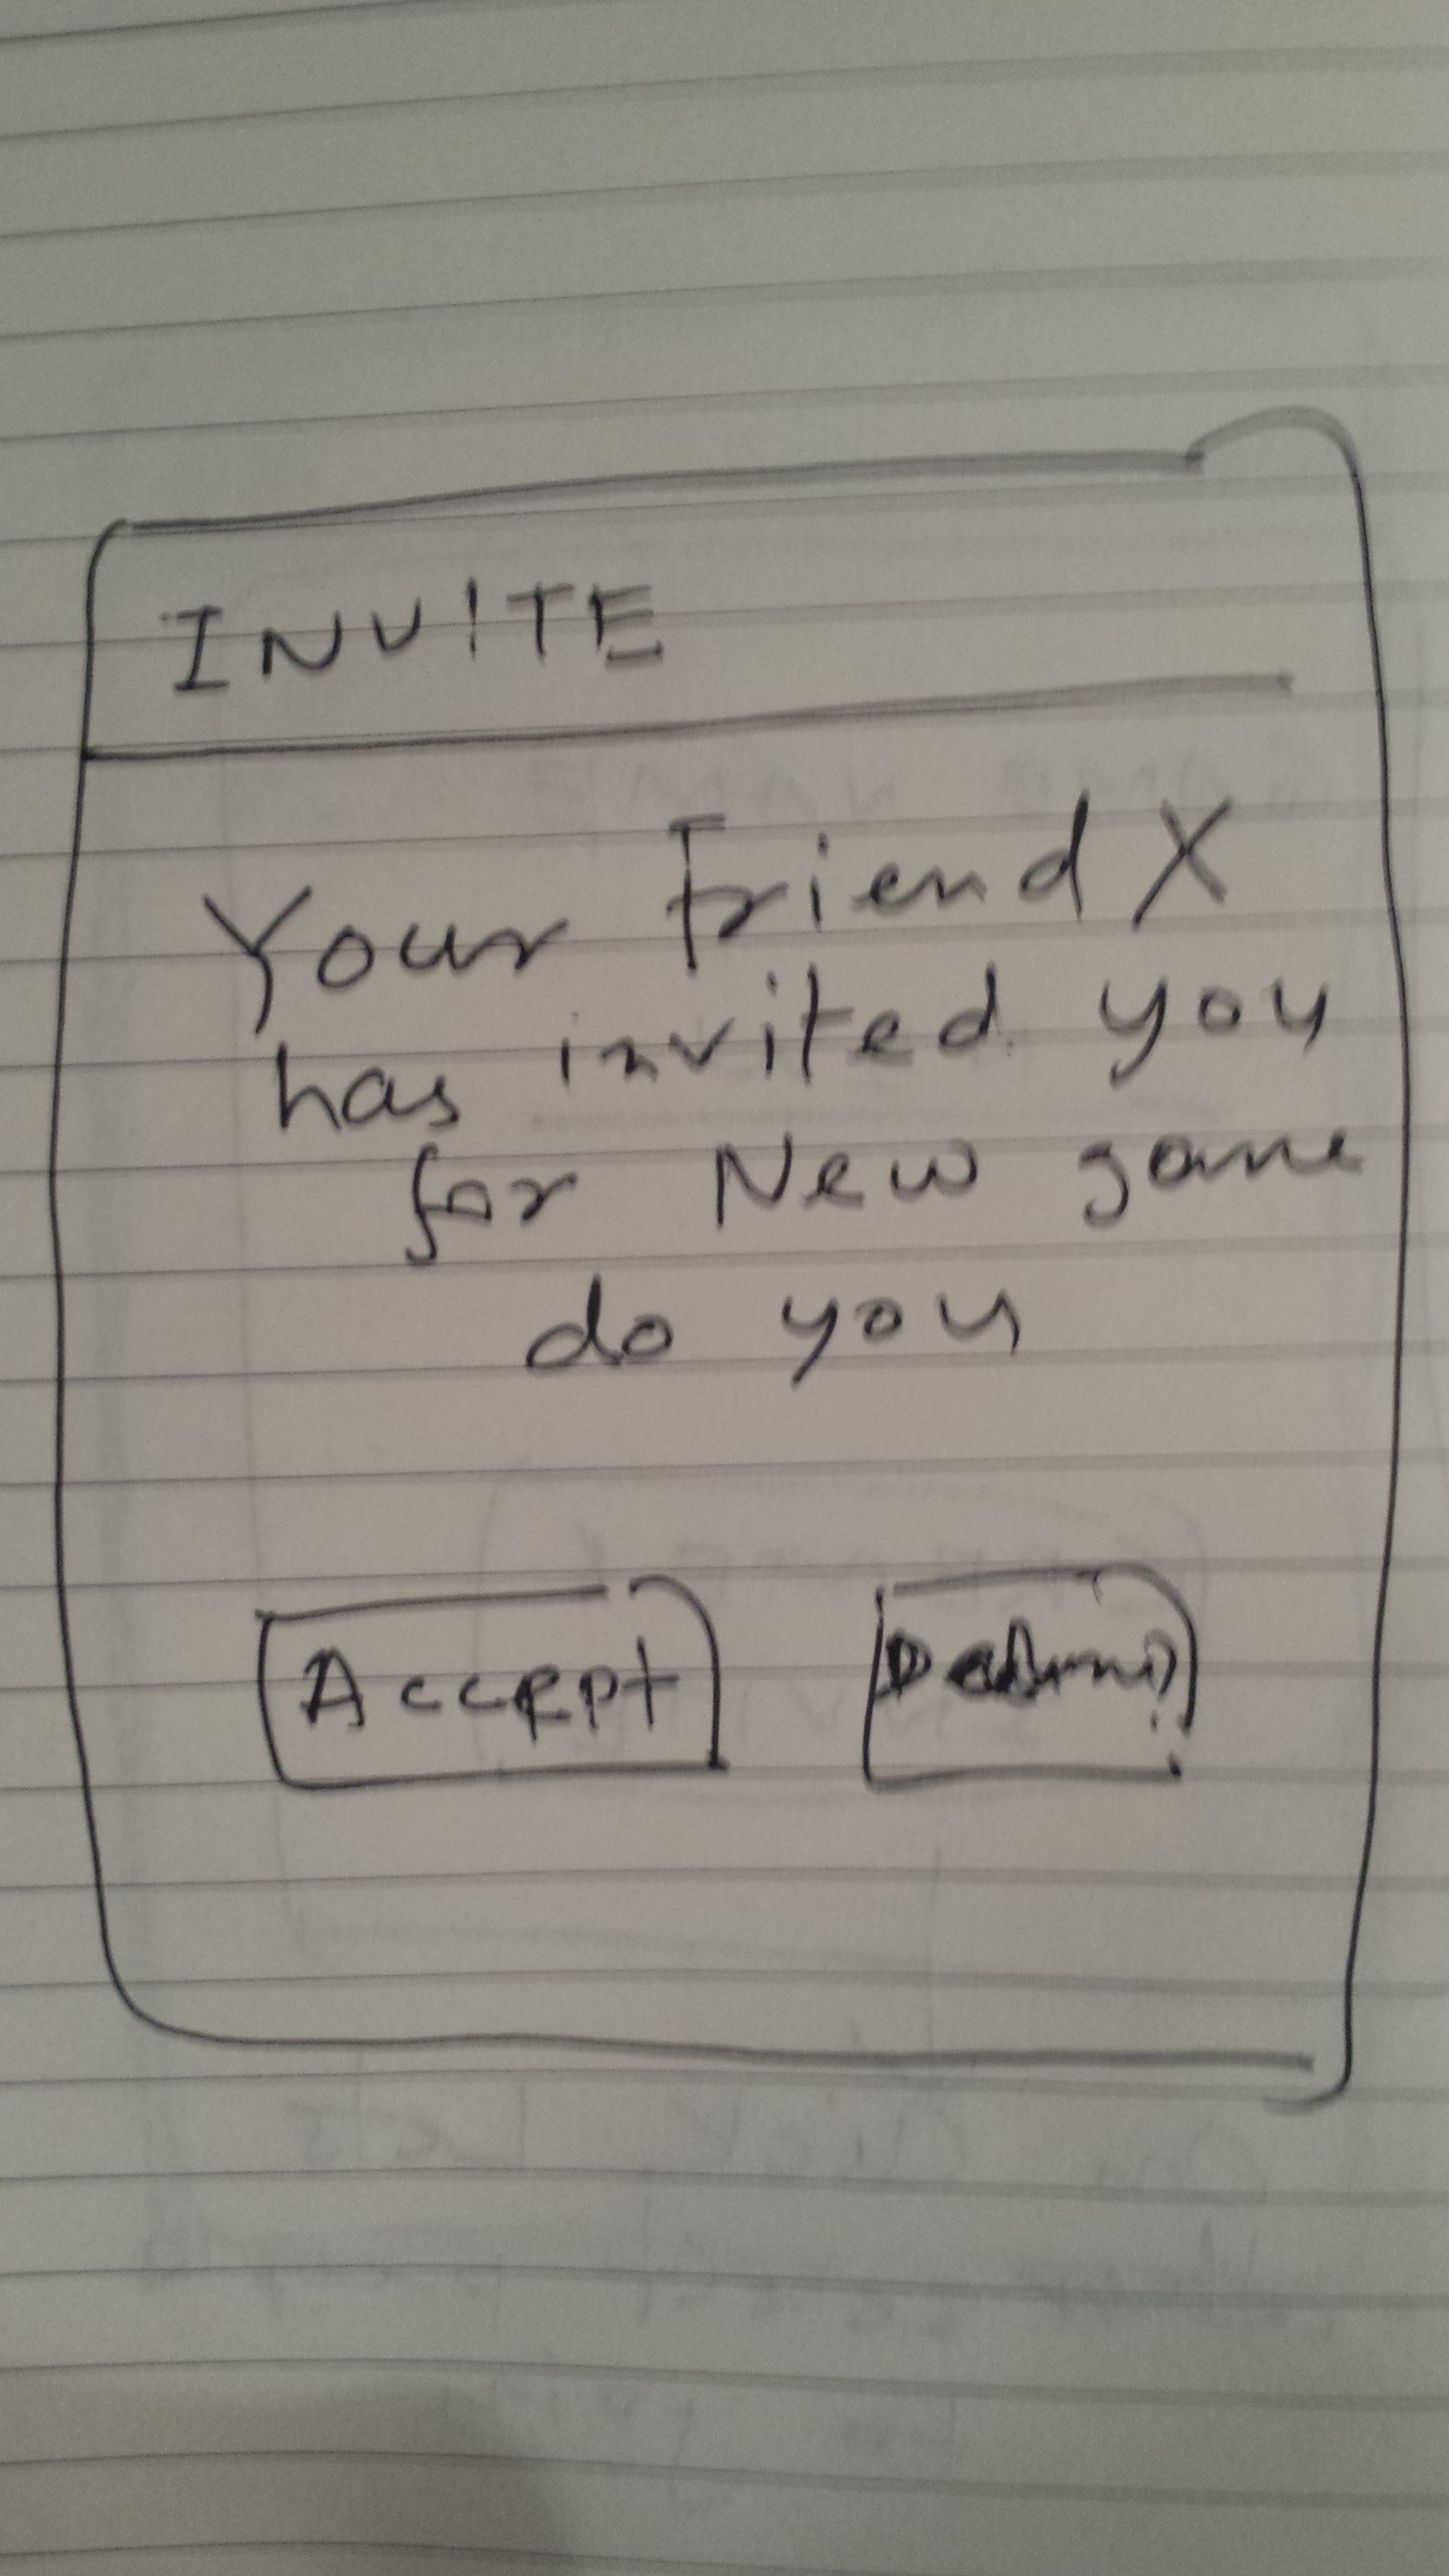 INVITE
Your Friend X
has invited you
for New game
do you
Accept